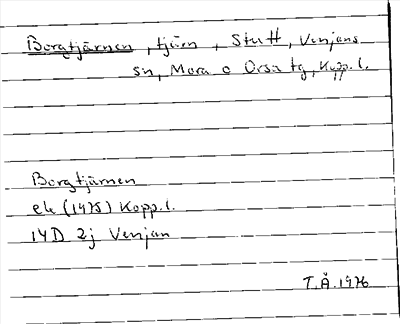 Borgtjärnen, tjärn, Stutt, Venjans
sn, Mora o Orsa tg, Kopp. l.
Borgtjärnen
ek (1975) Kopp. l.
14D 2j Venjan
T.Å. 1976